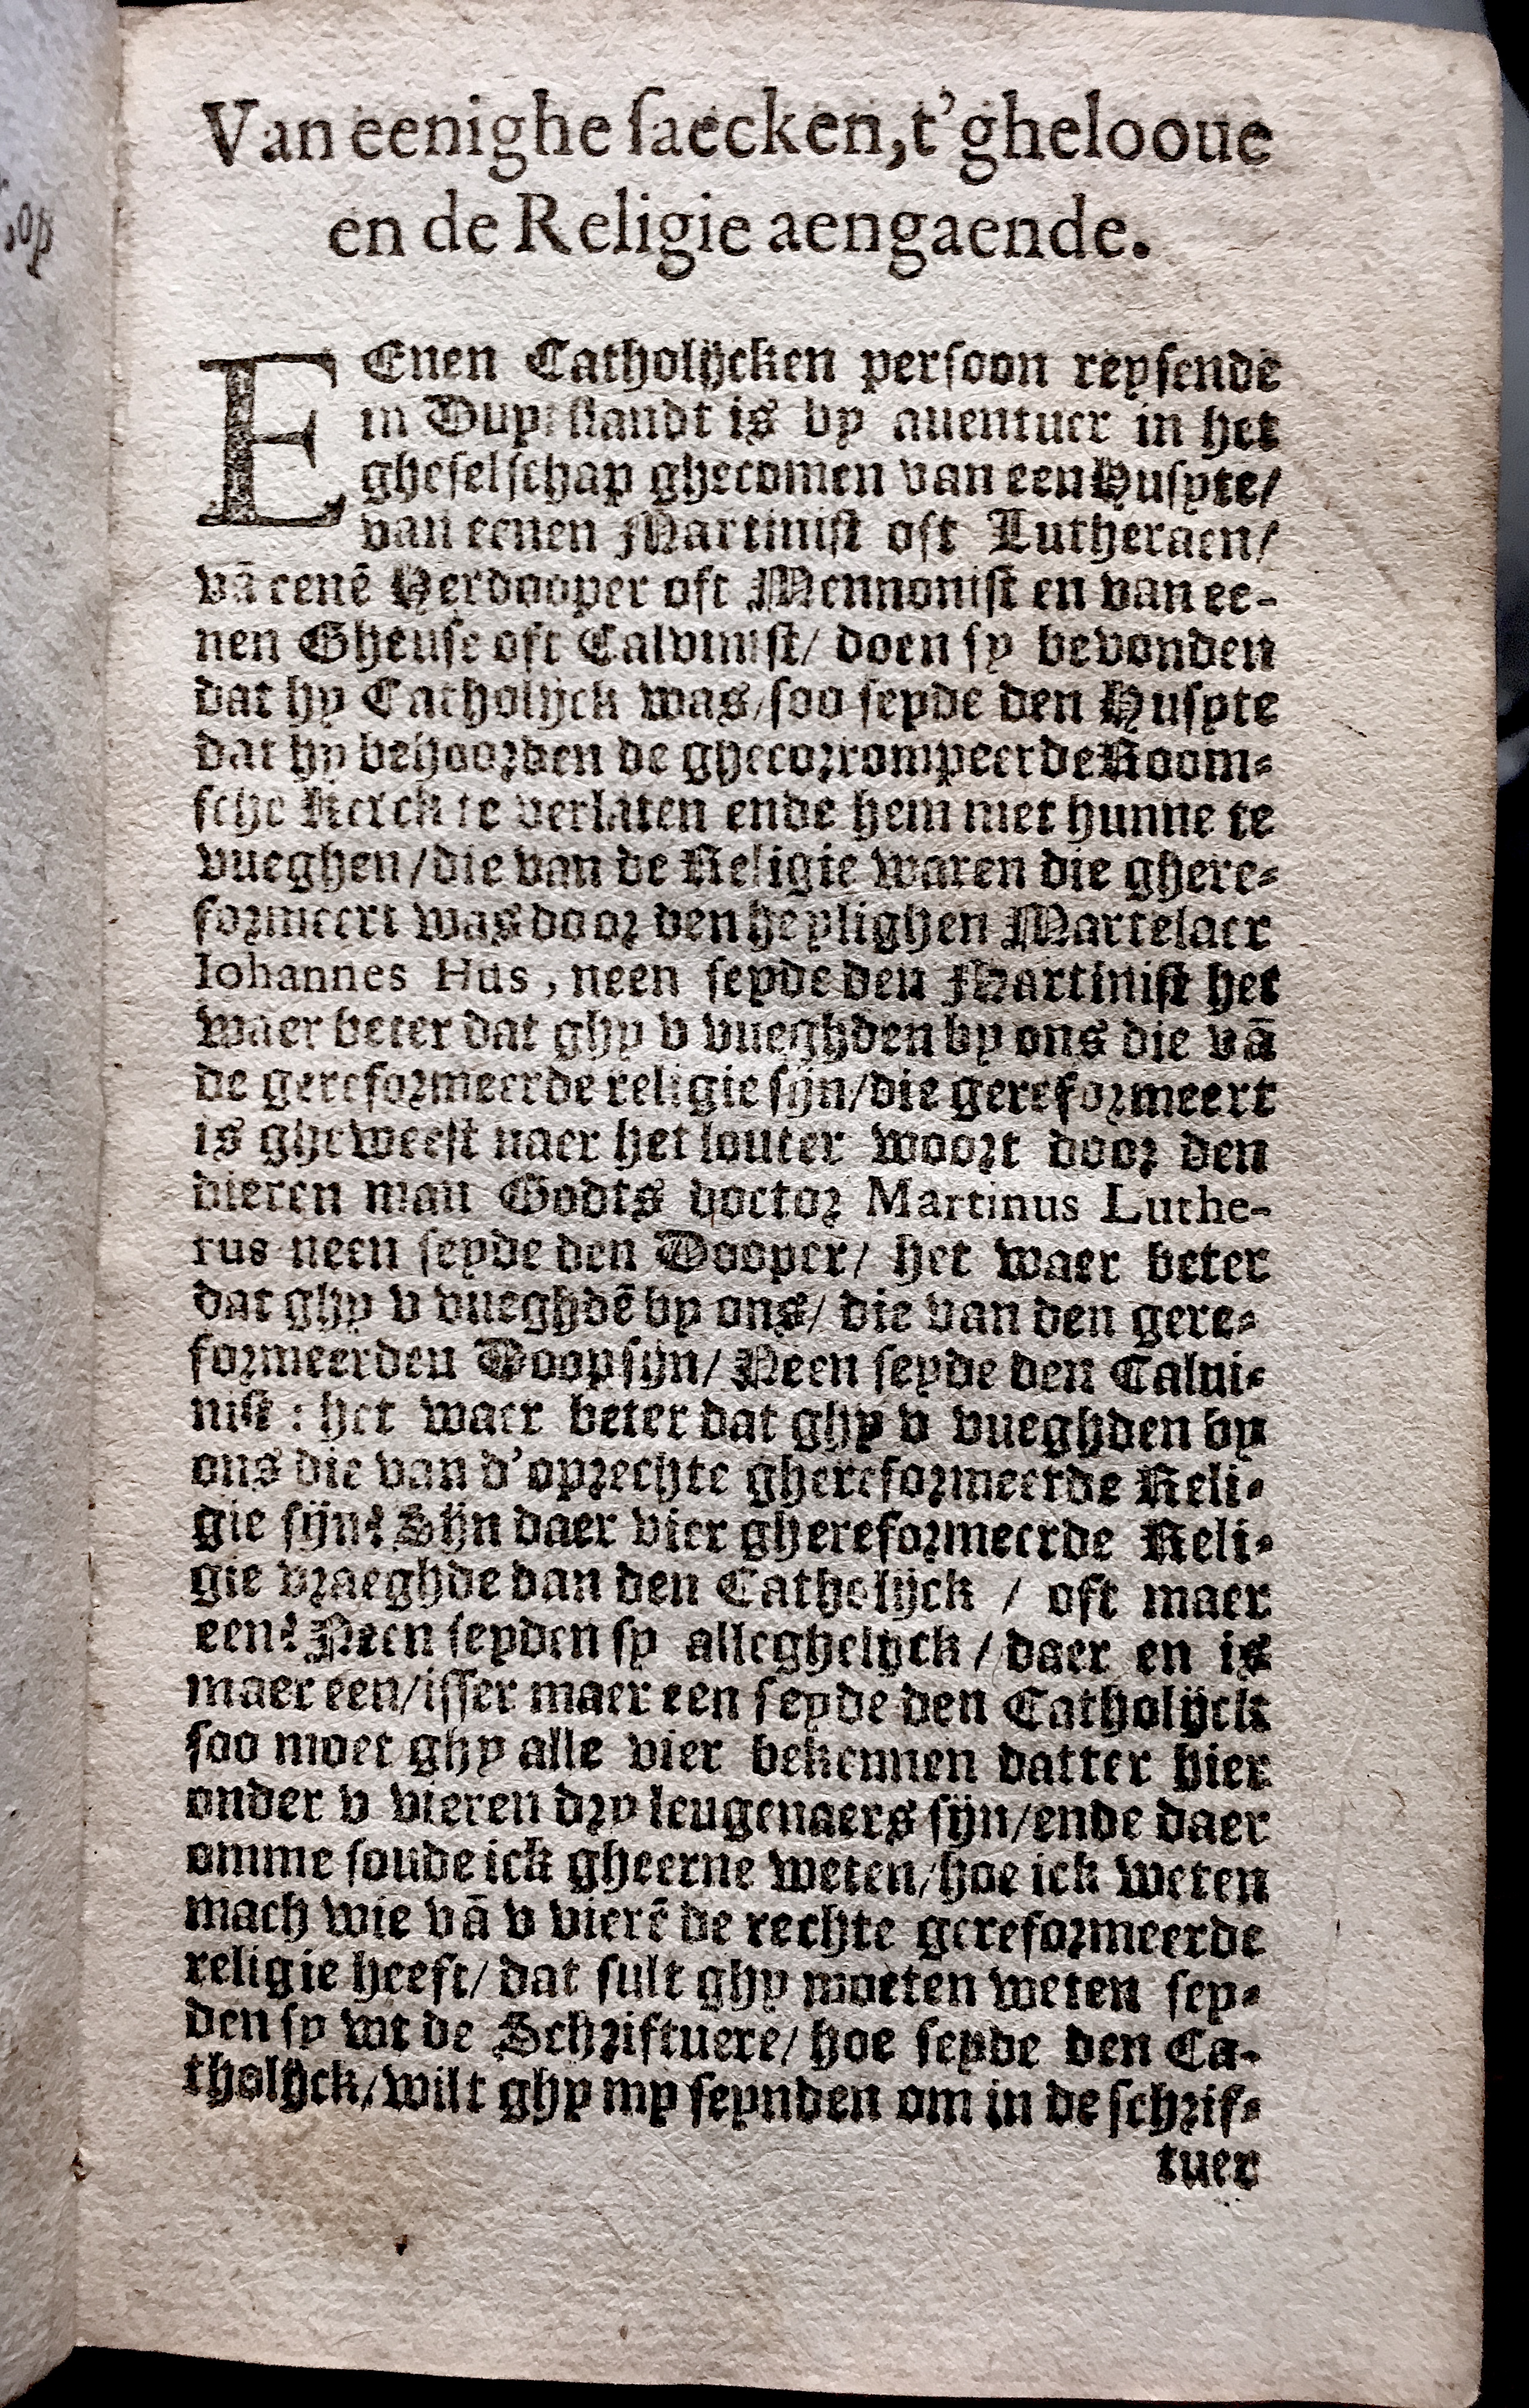 Van eenighe saecken, t'ghelooue
en de Religie aengaende.
EEnen Catholijcken persoon reysende
in Duytslandt is by auentuer in het
gheselschap ghecomen van een Husyte/
van eenen Martinist oft Lutheraen/
vā eenē Herdooper oft Mennonist en van ee-
nen Gheuse oft Calvinist/ doen sy bevonden
dat hy Catholijck was/soo seyde den Husyte
dat hy behoorden de ghecorrompeerde Room-
sche Kerck te verlaten ende hem met hunne te
vueghen/die van de Religie waren die ghere-
formeert was door den heylighen Martelaer
Iohannes Hus, neen seyde den Martinist het
waer beter dat ghy v vueghden by ons die vā
de gereformeerde religie sijn/die gereformeert
is gheweest naer het louter woort door den
dieren man Godts doctor Martinus Luthe-
rus neen seyde den Dooper/ het waer beter
dat ghy v vueghdē by ons/ die van den gere-
formeerden Doop sijn/ Neen seyde den Calui-
nist: het waer beter dat ghy v vueghden by
ons die van d'oprechte ghereformeerde Reli-
gie sijn? Sijn daer vier ghereformeerde Reli-
gie vraeghde dan den Catholijck / oft maer
een? Neen seyden sy alleghelijck / daer en is
maer een/isser maer een seyde den Catholijck
soo moet ghy alle vier bekennen datter hier
onder v vieren dry leugenaers sijn/ende daer
omme soude ick gheerne weten/hoe ick weten
mach wie vā v vierē de rechte gereformeerde
religie heeft/ dat sult ghy moeten weten sey-
den sy wt de Schriftuere/ hoe seyde den Ca-
tholijck/wilt ghy my seynden om in de schrif-
tuer